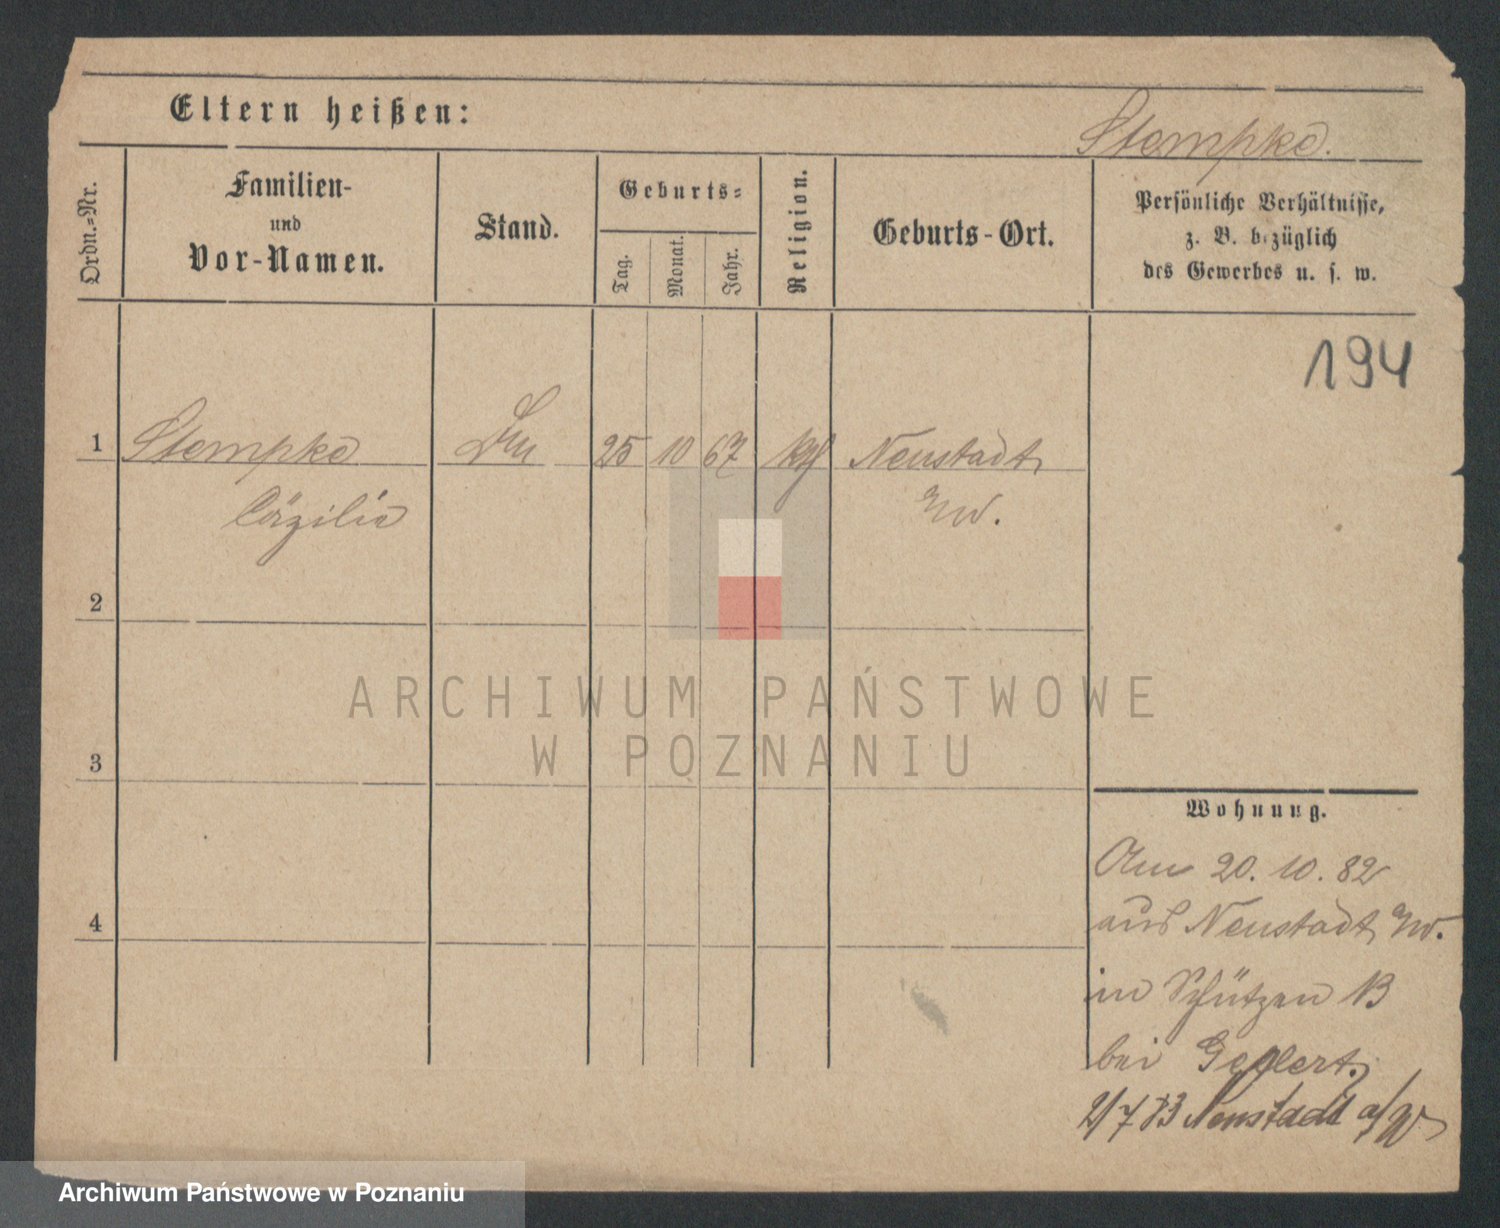 Eltern heißen:
Stempke.
Ordn.=Nr.
Familien-
und
Vor-Namen.
Stand.
Geburts=
Tag.
Monat.
Jahr.
Religion.
Geburts-Ort.
Persönliche Verhältnisse,
z. B. bezüglich
des Gewerbes u. s. w.
194
1 Stempke 25 10 67 kth Neustadt
Cäzilie
2
3
4
Wohnung.
Am 20. 10. 82
aus Neustadt
in Schützen 13
bei
2/7 83 Neustadt a/W
ARCHIWUM PAŃSTWOWE
W POZNANIU
Archiwum Państwowe w Poznaniu